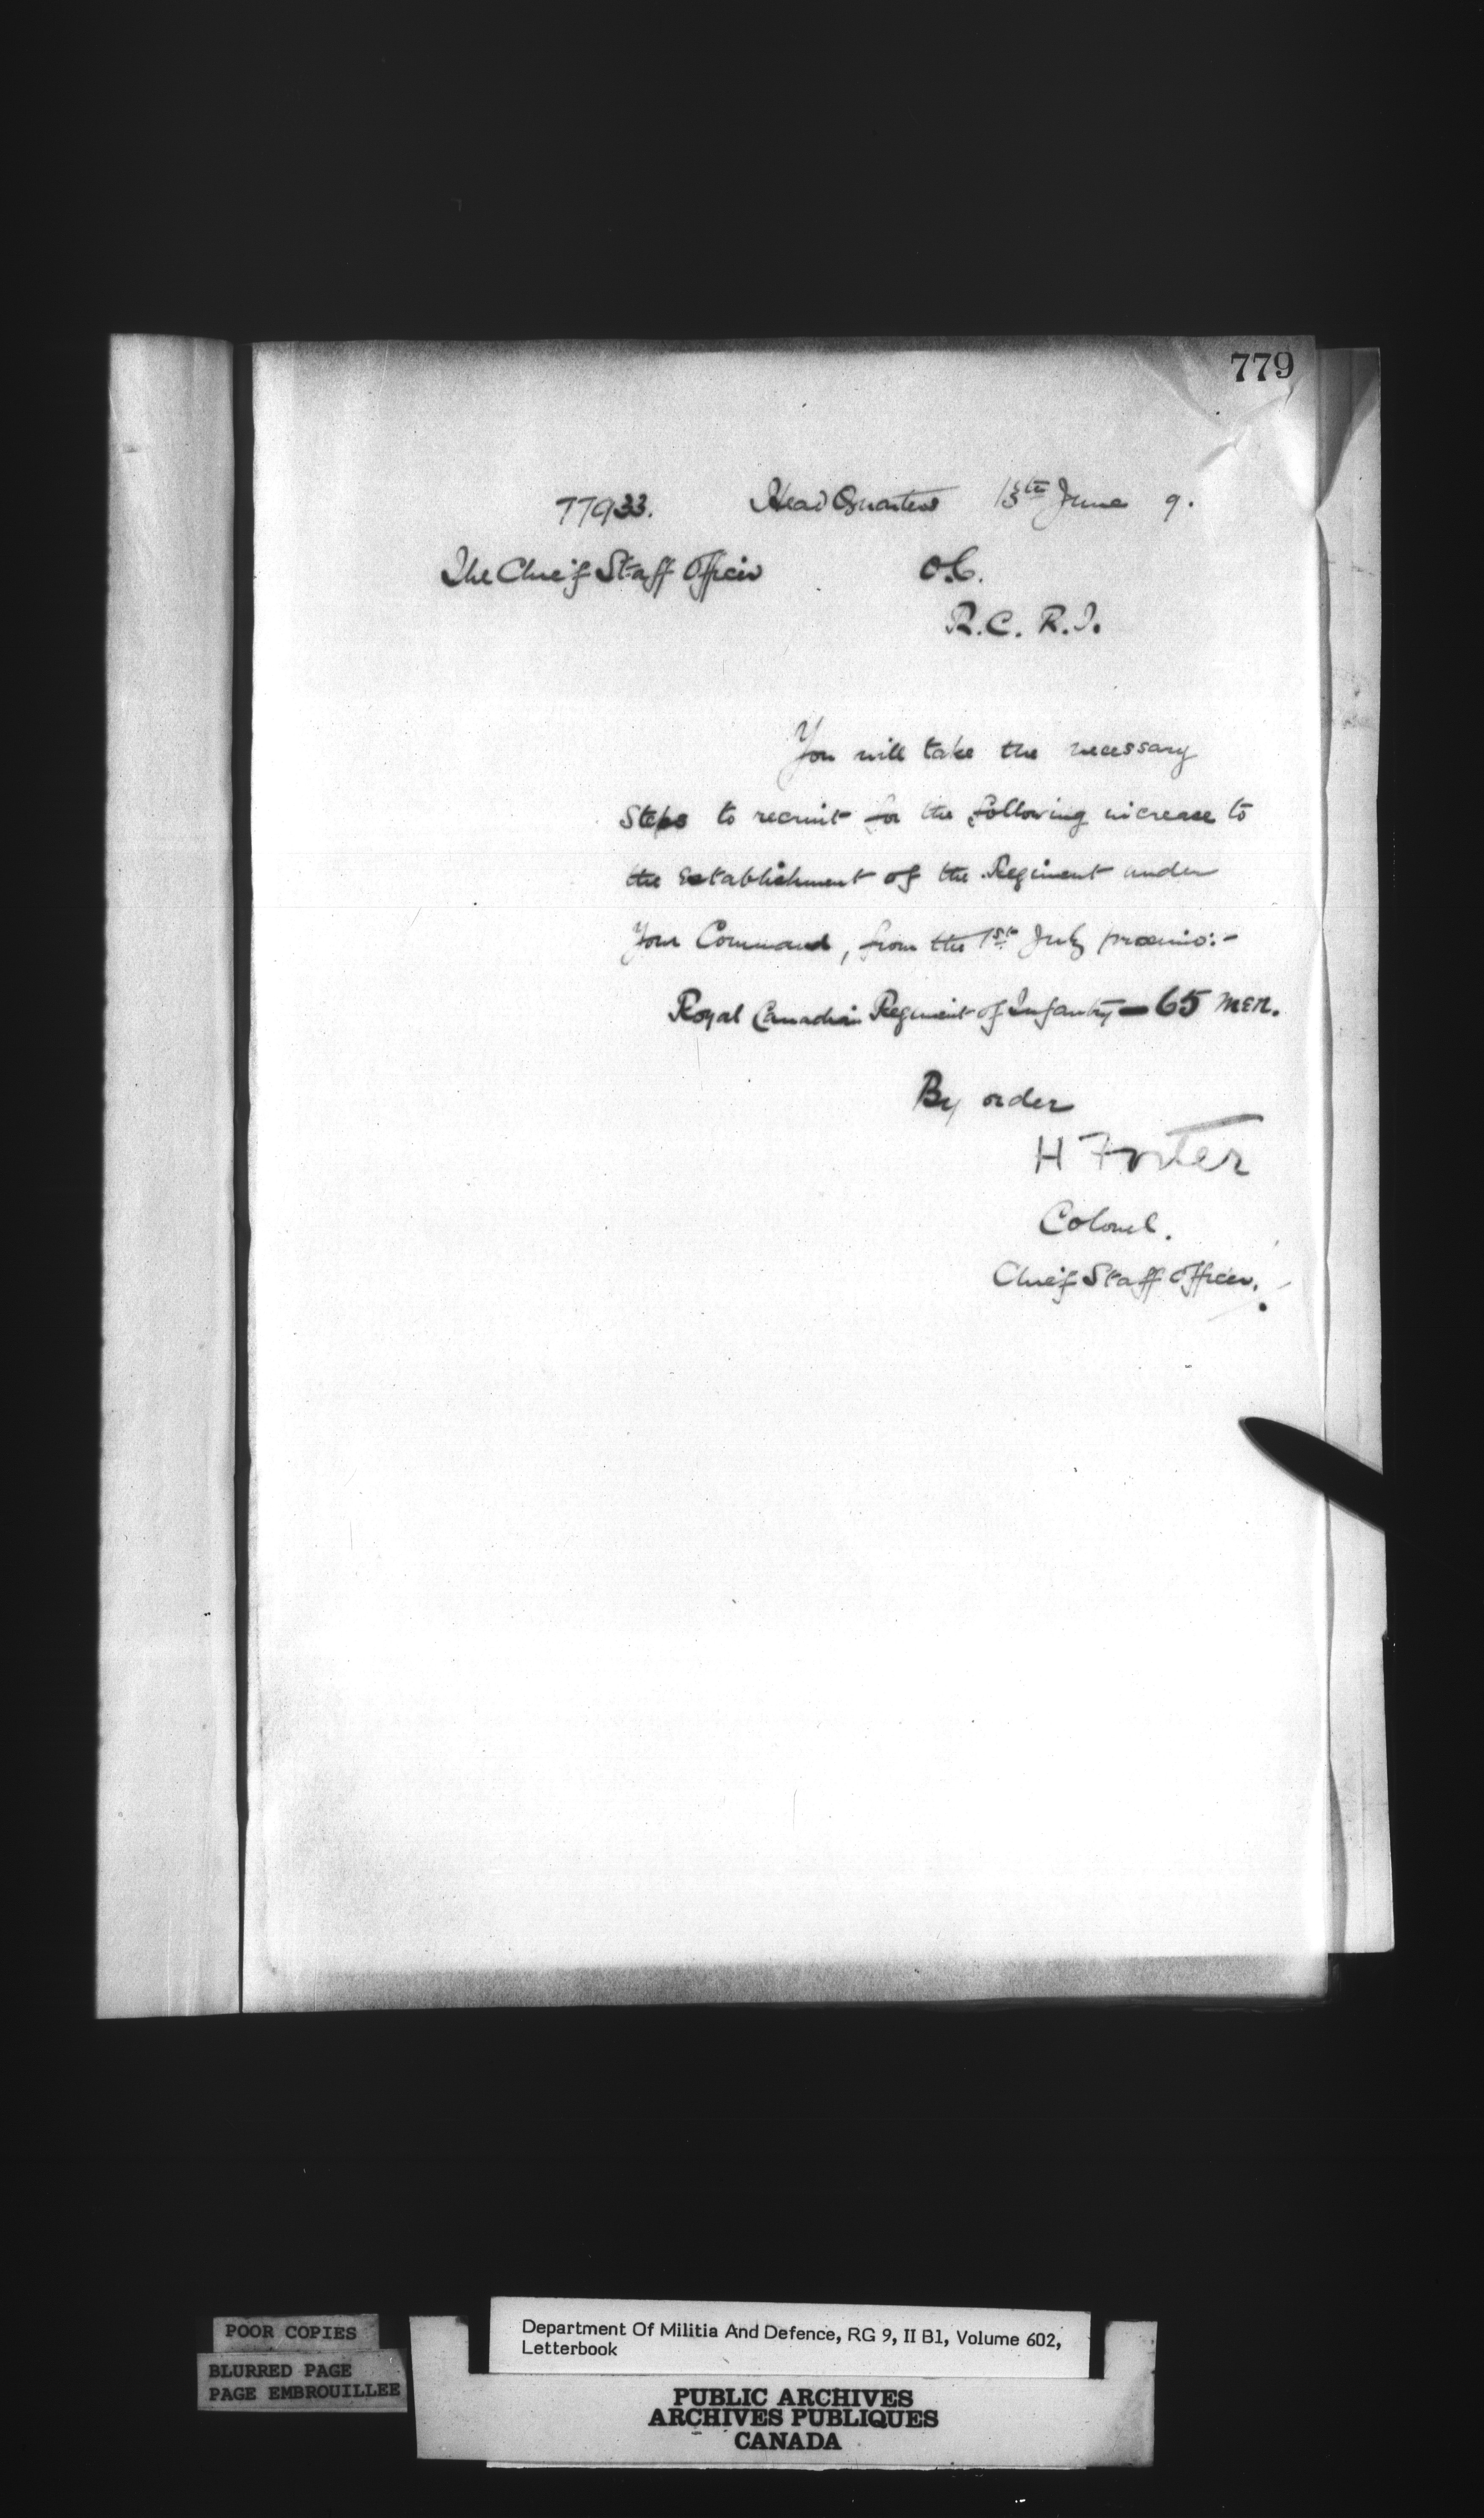 779
77933. Head Quarters 13th June 9.
The Chief Staff Officer O.C.
R.C.R.I.
You will take the necessary
Steps to recruit for the following increase to
the Establishment of the Regiment under
Your Command, from the 1st July proximo:-
Royal Canadian Regiment of Infantry — 65 men.
By order
H Foster
Colonel.
Chief Staff Officer.
POOR COPIES
BLURRED PAGE
PAGE EMBROUILLEE
Department Of Militia And Defence, RG 9, II B1, Volume 602,
Letterbook
PUBLIC ARCHIVES
ARCHIVES PUBLIQUES
CANADA